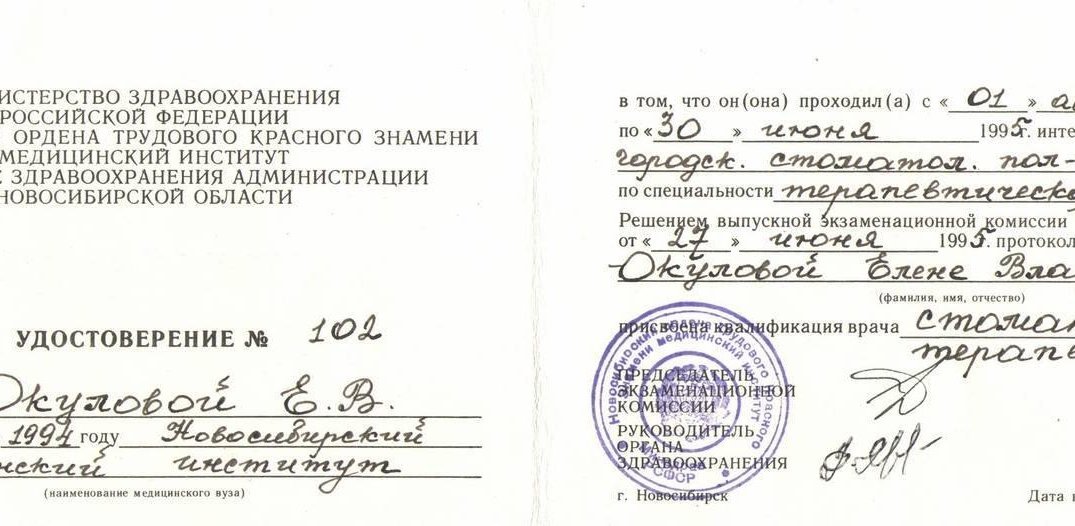 ИСТЕРСТВО ЗДРАВООХРАНЕНИЯ
РОССИЙСКОЙ ФЕДЕРАЦИИ
ОРДЕНА ТРУДОВОГО КРАСНОГО ЗНАМЕНИ
МЕДИЦИНСКИЙ ИНСТИТУТ
Е ЗДРАВООХРАНЕНИЯ АДМИНИСТРАЦИИ
НОВОСИБИРСКОЙ ОБЛАСТИ
УДОСТОВЕРЕНИЕ № 102
Окуловой Е.В.
1994 году Новосибирский
нский институт
(наименование медицинского вуза)
в том, что он(она) проходил(а) с «01»
по «30» июня 1995г. инте
городск. стоматол. пол-
по специальности терапевтическо
Решением выпускной экзаменационной комиссии
от «27» июня 1995г. протокол
Окуловой Елене Вла
(фамилия, имя, отчество)
присвоена квалификация врача стомат
терапе
ПРЕДСЕДАТЕЛЬ
ЭКЗАМЕНАЦИОННОЙ
КОМИССИИ
РУКОВОДИТЕЛЬ
ОРГАНА
ЗДРАВООХРАНЕНИЯ
г. Новосибирск Дата
Новосибирский ордена Трудового Красного Знамени медицинский институт
РСФСР